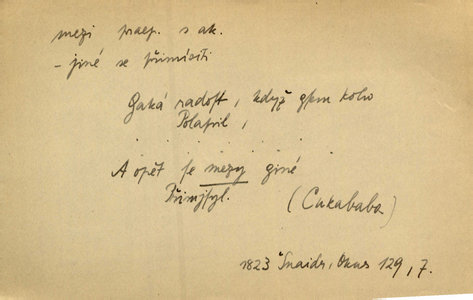 mezi praep. s ak.
- jiné se přimísiti
Gaká radost, když gsem koho
Polapil,
. . . . . . . . .
A opět se mezy giné
Přimjsyl.
(Cakababa)
1823 Šnaidr, Okus 129, 7.